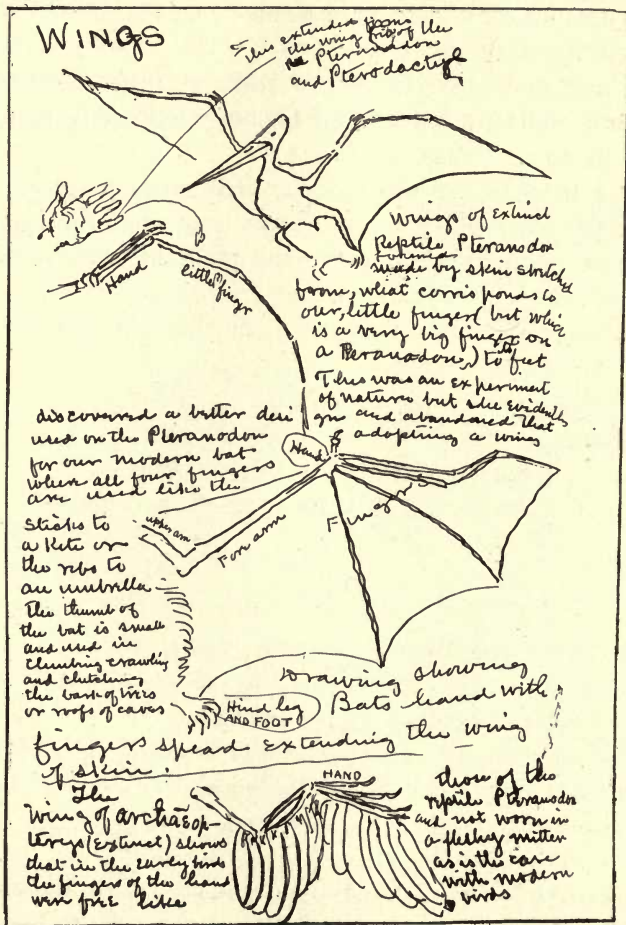 WINGS
This extended forms
the wing of the
Pteranodon
and Pterodactyl
Hand
little finger
Wings of Extinct
Reptile Pteranodon
formed
made by skin stretched
from, what corrisponds to
our, little finger (but which
is a very big finger on
a Peranodon,) to the feet
This was an experiment
of nature but she evidently
discovered a better desi
gn and abandoned that
used on the Pteranodon
adopting a wing
for our modern bat
where all four fingers
are used like the
sticks to
a Kite or
the ribs to
an umbrella
the thumb of
the bat is small
and used in
climbing crawling
and clutching
the bark of trees
or roofs of caves
Hand
upper arm
Forarm
Fingers
Hind leg
AND FOOT
Drawing showing
Bats hand with
fingers spead extending the wing
of skin.
HAND
The
wing of archæop-
teryx (Extinct) shows
that in the early birds
the fingers of the hand
were free like
those of the
reptile Pteranodon
and not worn in
a fleshy mitten
as is the case
with modern
birds